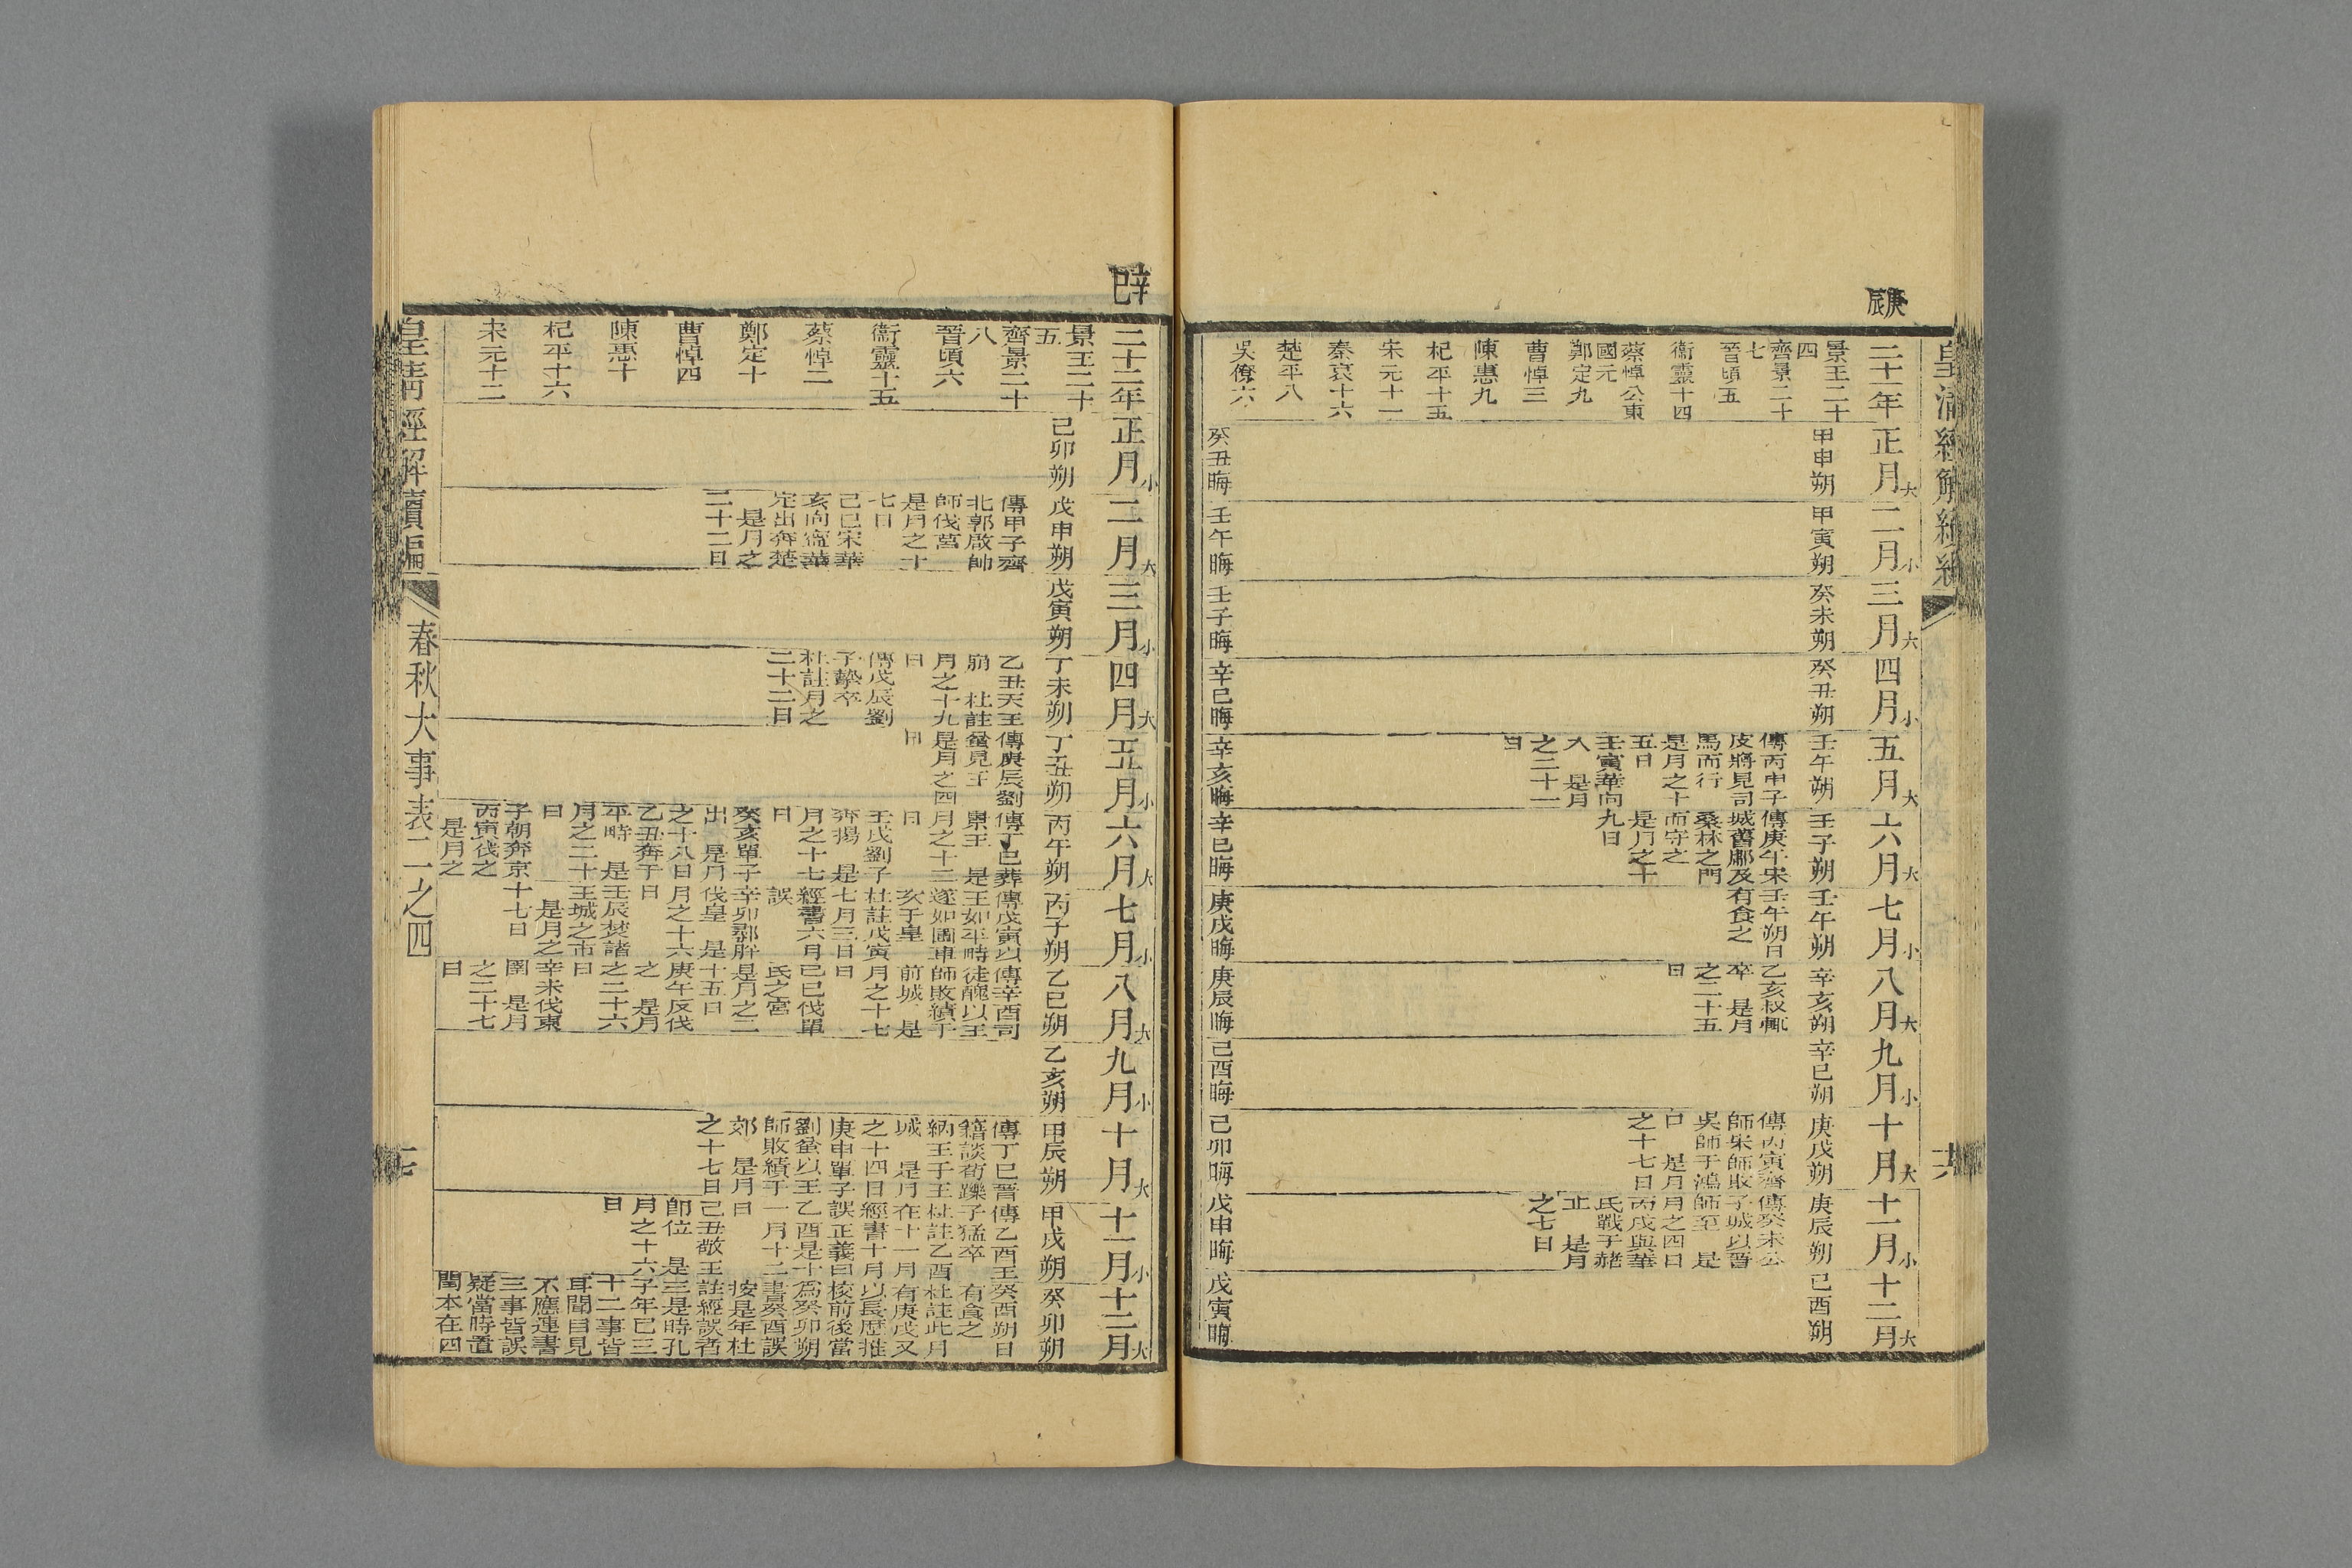 庚辰
皇清經解續編
二十一年
景王二十
四
齊景二十
七
晉頃五
衞靈十四
蔡悼公東
國元
鄭定九
曹悼三
陳惠九
杞平十五
宋元十一
秦哀十六
楚平八
吳僚六
正月大
甲申朔
癸丑晦
二月小
甲寅朔
壬午晦
三月大
癸未朔
壬子晦
四月小
癸丑朔
辛巳晦
五月大
壬午朔
傳丙申子
皮將見司
馬而行
是月之十
五日
壬寅華向
入 是月
之二十一
日
辛亥晦
六月大
壬子朔
傳庚午宋
城舊鄘及
桑林之門
而守之
是月之十
九日
辛巳晦
七月小
壬午朔
壬午朔日
有食之
庚戌晦
八月大
辛亥朔
乙亥叔輒
卒 是月
之二十五
日
庚辰晦
九月小
辛巳朔
己酉晦
十月大
庚戌朔
傳丙寅齊
師宋師敗
吳師于鴻
口 是月
之十七日
己卯晦
十一月小
庚辰朔
傳癸未公
子城以晉
師至 是
月之四日
丙戌與華
氏戰于赭
丘 是月
之七日
戊申晦
十二月大
己酉朔
戊寅晦
辛巳
二十二年
景王二十
五
齊景二十
八
晉頃六
衞靈十五
蔡悼二
鄭定十
曹悼四
陳惠十
杞平十六
宋元十二
正月小
己卯朔
二月大
戊申朔
傳甲子齊
北郭啟帥
師伐莒
是月之十
七日
己巳宋華
亥向寗華
定出奔楚
是月之
二十二日
三月小
戊寅朔
四月大
丁未朔
乙丑天王
崩 杜註
月之十九
日
傳戊辰劉
子摯卒
杜註月之
二十二日
五月小
丁丑朔
傳庚辰劉
蚠見王
是月之四
日
六月大
丙午朔
傳丁巳葬
景王 是
月之十二
日
壬戌劉子
奔揚 是
月之十七
日
癸亥單子
出 是月
之十八日
乙丑奔于
平畤 是
月之二十
日
子朝奔京
丙寅伐之
是月之
七月小
丙子朔
傳戊寅以
王如平畤
遂如圃車
亥于皇
杜註戊寅
七月三日
經書六月
誤
辛卯鄩肸
伐皇 是
月之十六
日
壬辰焚諸
王城之市
是月之
十七日
八月大
乙巳朔
傳辛酉司
徒醜以王
師敗績于
前城 是
月之十七
日
己巳伐單
氏之宮
是月之二
十五日
庚午反伐
之 是月
之二十六
日
辛未伐東
圉 是月
之二十七
日
九月小
乙亥朔
十月大
甲辰朔
傳丁巳晉
籍談荀躒
納王于王
城 是月
之十四日
庚申單子
劉蚠以王
師敗績于
郊 是月
之十七日
十一月小
甲戌朔
傳乙酉王
子猛卒
杜註乙酉
在十一月
經書十月
誤正義曰
乙酉是十
一月十二
日
己丑敬王
卽位 是
月之十六
日
十二月大
癸卯朔
癸酉朔日
有食之
杜註此月
有庚戌又
以長歷推
校前後當
爲癸卯朔
書癸酉誤
按是年杜
註經誤者
三是時孔
子年已三
十二事皆
耳聞目見
不應連書
三事皆誤
疑當時置
閏本在四
皇清經解續編
春秋大事表二之四